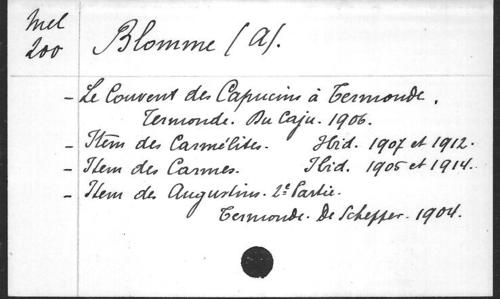 Mel
200
Blomme (A).
- Le Couvent des Capucins à Termonde.
Termonde. Du Caju. 1906.
- Item des Carmélites. Ibid. 1907 et 1912.
- Item des Carmes. Ibid. 1905 et 1914.
- Item des Augustins. 2e Partie.
Termonde. De Schepper. 1904.